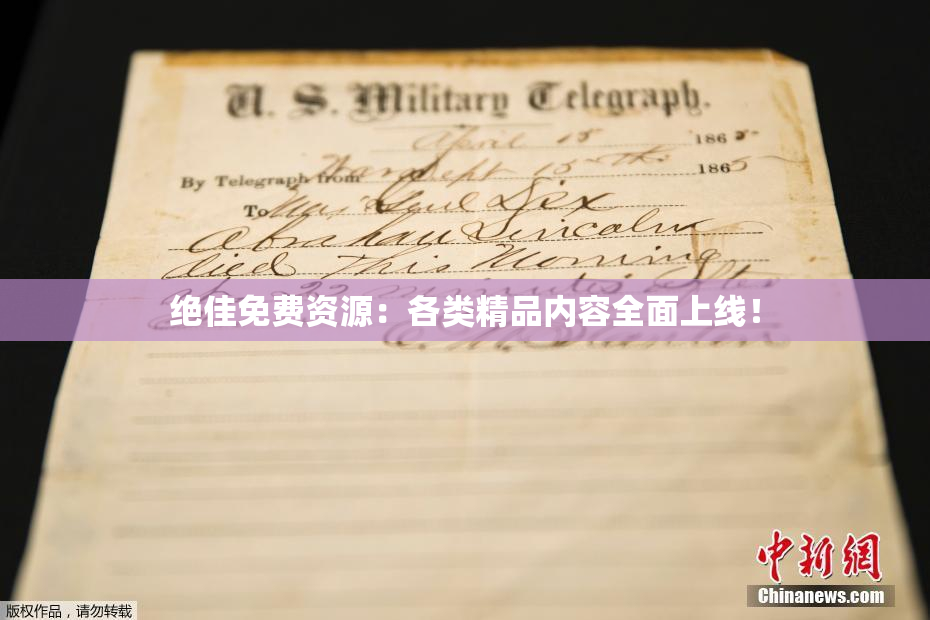 U. S. Military Telegraph.
April 15 1865
By Telegraph from War Dept 15th 1865
To Maj Genl Dix
Abraham Lincoln
died This Morning
at 22 minutes after
绝佳免费资源：各类精品内容全面上线！
E. M. Stanton
中新网
Chinanews.com
版权作品，请勿转载